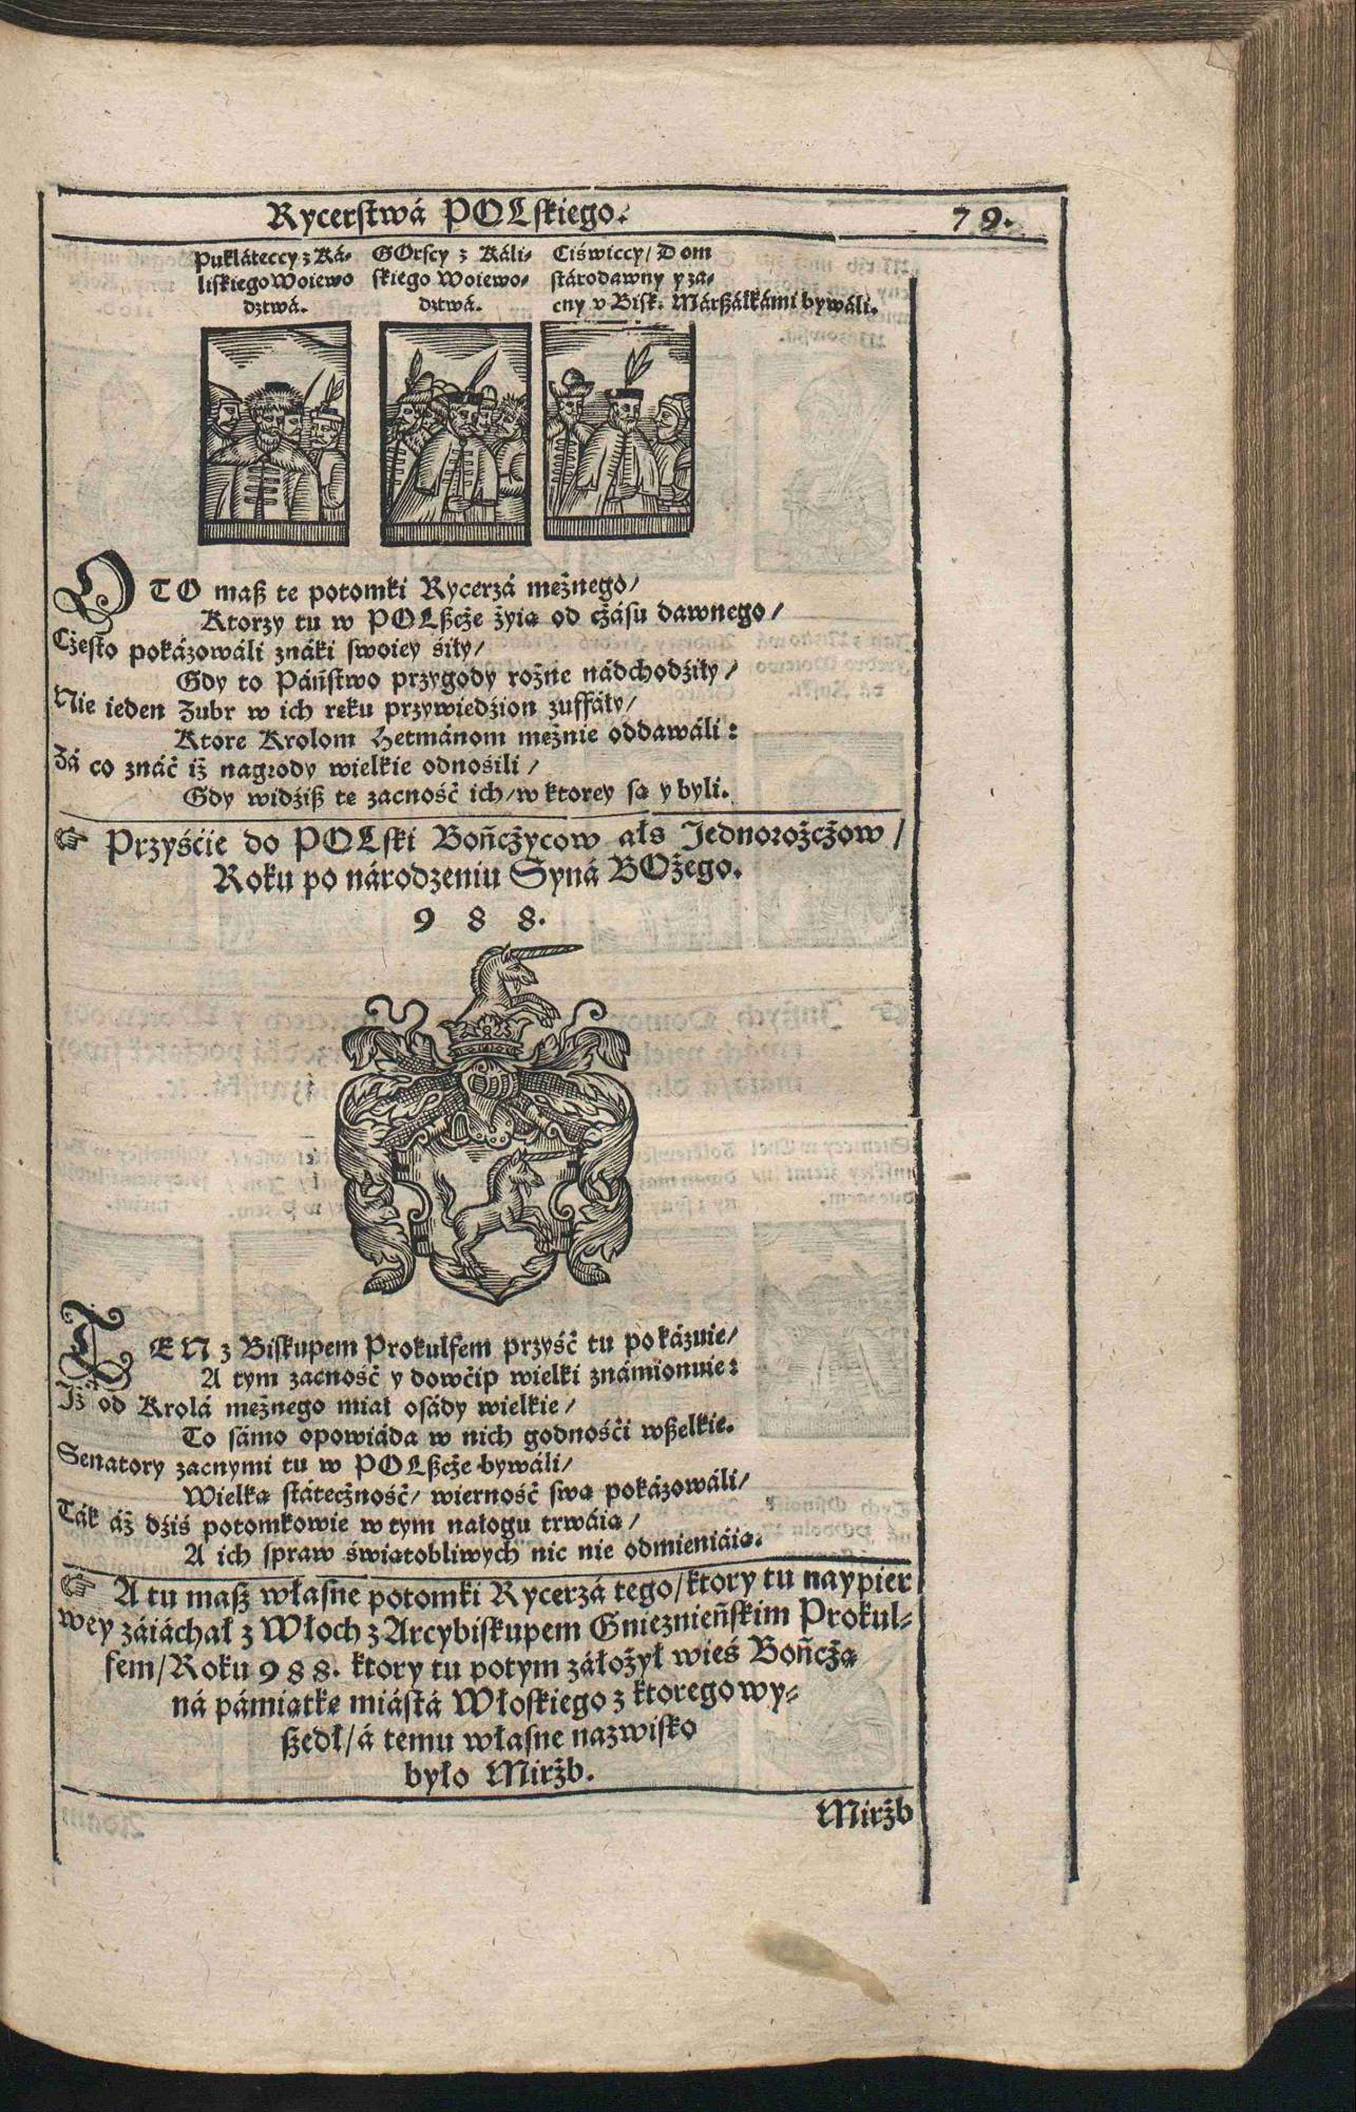 Rycerstwá POLskiego.
79.
Pukláteccy z Ká-
liskiego Woiewo
dztwá.
GOrscy z Káli-
skiego Woiewo-
dztwá.
Ciświccy/ Dom
stárodawny y za-
cny v Bisk. Márßáłkámi bywáli.
OTO maß te potomki Rycerzá mężnego/
Ktorzy tu w POLßcże żyią od cżásu dawnego/
Cżęsto pokázowáli znáki swoiey śiły/
Gdy to Páństwo przygody rożne nádchodźiły/
Nie ieden Zubr w ich ręku przywiedźion zuffáły/
Ktore Krolom Hetmánom mężnie oddawáli:
Zá co znáć iż nagrody wielkie odnośili/
Gdy widźiß te zacność ich/ w ktorey są y byli.
☞ Przyśćie do POLski Bońcżycow ábo Jednorożcżow/
Roku po národzeniu Syná BOżego.
9 8 8.
TEN z Biskupem Prokulfem przyść tu pokázuie/
A tym zacność y dowćip wielki známionuie:
Iż od Krolá mężnego miał osády wielkie/
To sámo opowiáda w nich godnośći wßelkie.
Senatory zacnymi tu w POLßcże bywáli/
Wielką státecżność/ wierność swą pokázowáli/
Ták áż dźiś potomkowie w tym nałogu trwáią/
A ich spraw świątobliwych nic nie odmieniáią.
☞ A tu maß własne potomki Rycerzá tego/ ktory tu naypier
wey záiáchał z Włoch z Arcybiskupem Gnieznieńskim Prokul-
fem/ Roku 988. ktory tu potym záłożył wieś Bońcżą
ná pámiątkę miástá Włoskiego z ktorego wy-
ßedł/ á temu własne nazwisko
było Mirżb.
Mirżb